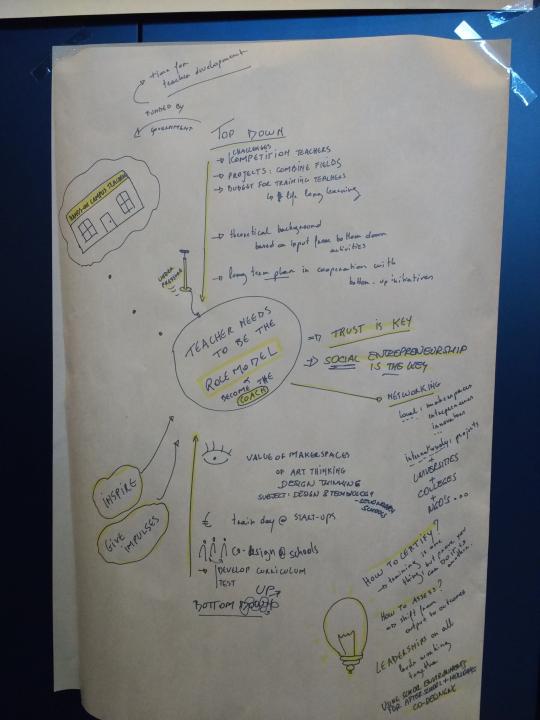 time for
teacher development
FUNDED BY
GOVERNMENT
TOP DOWN
CHALLENGES
→ COMPETITION TEACHERS
→ PROJECTS: COMBINE FIELDS
→ BUDGET FOR TRAINING TEACHERS
life long learning
HANDS-ON CAMPUS TEACHING
→ theoretical background
based on input from bottom down
activities
→ long term plan in cooperation with
bottom-up initiatives
UNDER
PRESSURE
TEACHER NEEDS
TO BE THE
ROLE MODEL
&
BECOME THE
COACH
→ TRUST IS KEY
→ SOCIAL ENTREPRENEURSHIP
IS THE KEY
→ NETWORKING
local: makerspaces
entrepreneurs
innovators
...
internationally: projects
+
UNIVERSITIES
+
COLLEGES
+
NGO'S...
INSPIRE
GIVE
IMPULSES
VALUE OF MAKERSPACES
OF ART THINKING
DESIGN THINKING
SUBJECT: DESIGN & TECHNOLOGY
SCHOOLS
€ train day @ START-UPS
co-design @ schools
→ DEVELOP CURRICULUM
TEST
UP
BOTTOM
HOW TO CERTIFY?
→ training is one
thing, but prove you
can do it is
another.
HOW TO ASSESS?
→ shift from
output to outcomes
LEADERSHIPS on all
levels working
together
USING SCHOOL ENVIRONMENT
FOR AFTER SCHOOL + HOLIDAYS
CO-DESIGN